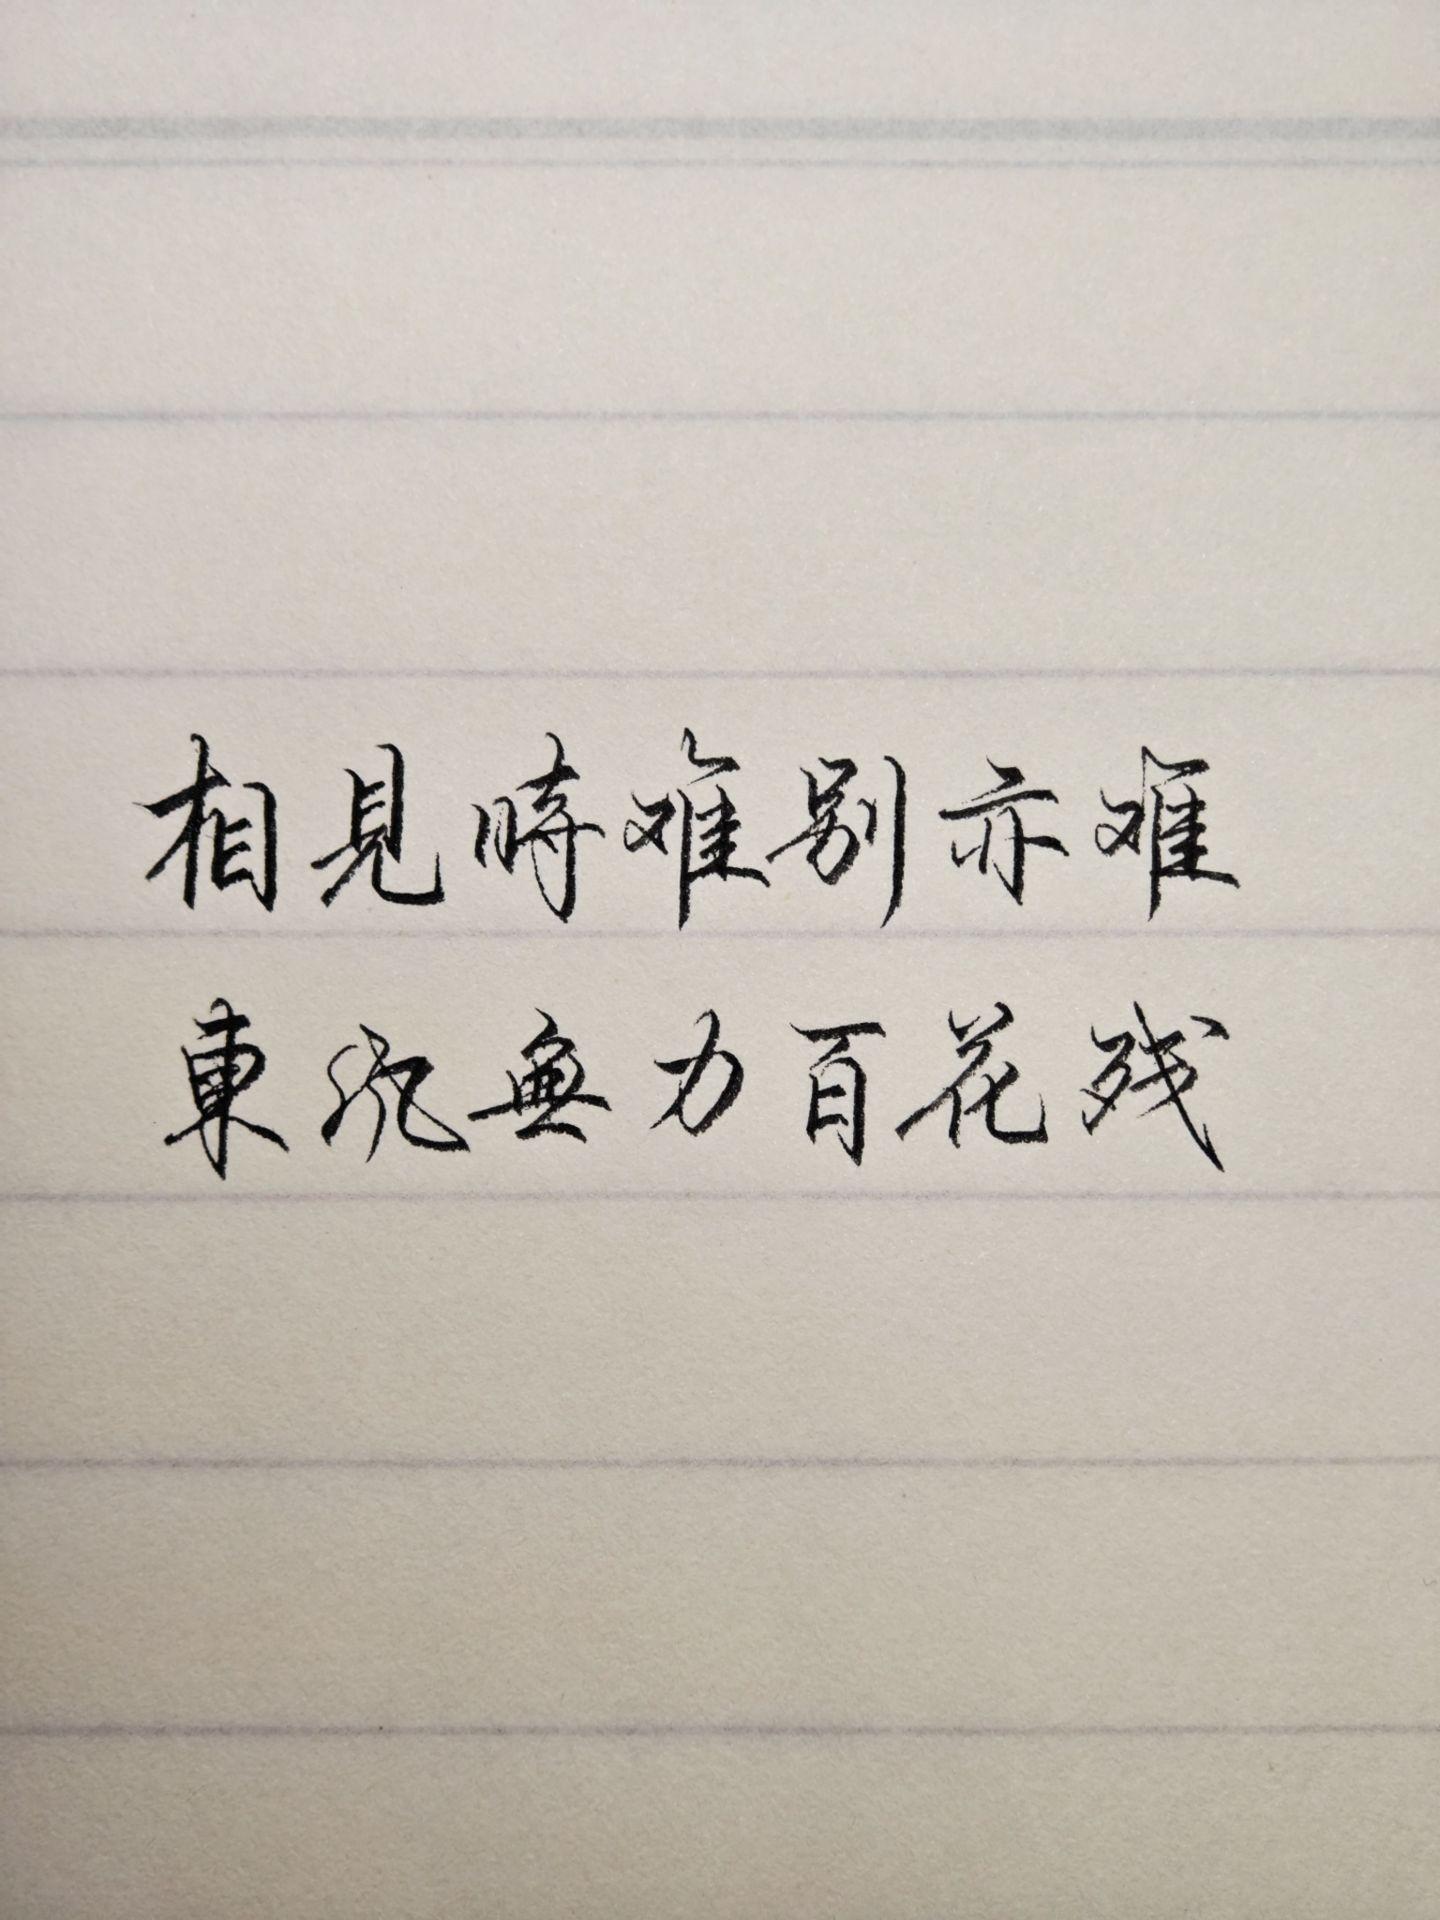 相見時难别亦难
東风無力百花残